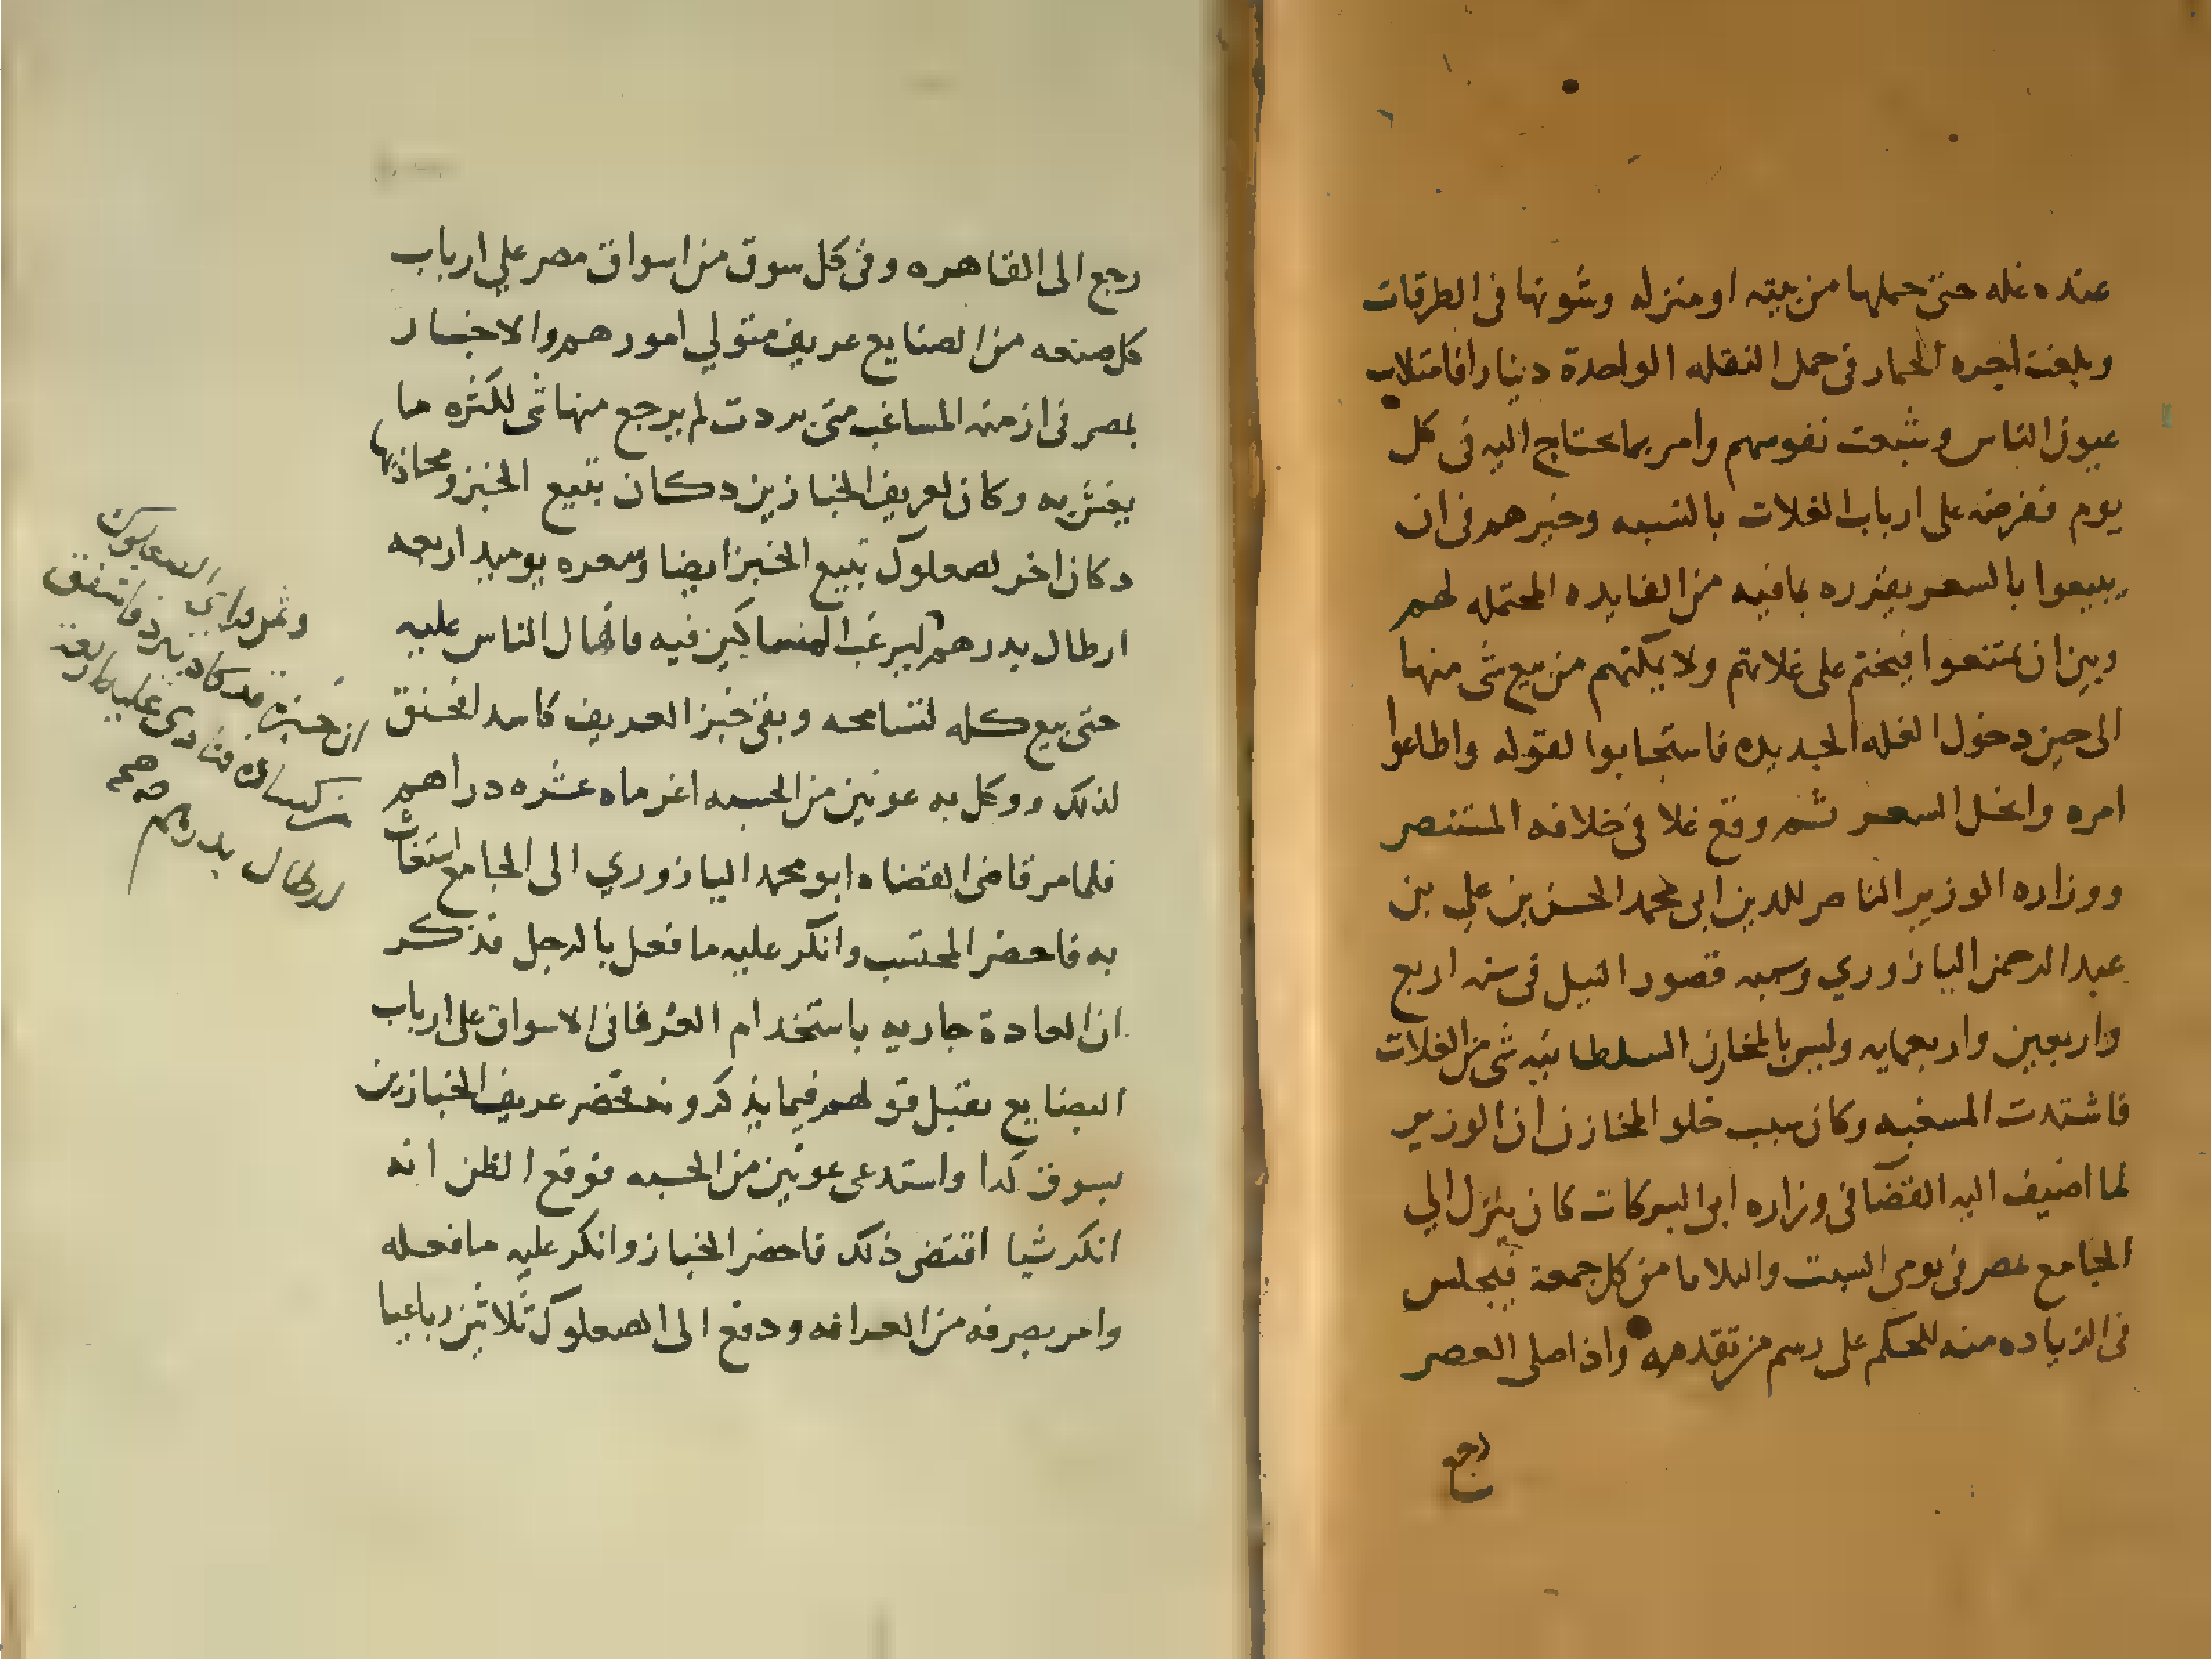 عنده غله حتى حملها من بيته او منزله وشونها فى الطرقات
وبلغت اجره الحمار فى حمل النقله الواحدة دينارا فامتلات
عيون الناس وشبعت نفوسهم وامر بما يحتاج اليه فى كل
يوم ففرضه على ارباب الغلات بالنسبه وخيرهم فى ان
يبيعوا بالسعر يقرره بما فيه من الفايده المحتمله لهم
وبين ان يمتنعوا فيختم على غلاتهم ولا يمكنهم من بيع شى منها
الى حين دخول الغله الجديده فاستجابوا لقوله واطاعوا
امره وانحل السعر ثم وقع غلا فى خلافه المستنصر
ووزاره الوزير الناصر للدين ابى محمد الحسن بن علي بن
عبد الرحمن اليازوري وسببه قصور النيل فى سنه اربع
واربعين واربعمايه وليس بالمخازن السلطانيه شى من الغلات
فاشتدت المسغبه وكان سبب خلو المخازن ان الوزير
لما اضيف اليه القضا فى وزاره ابى البركات كان ينزل الي
الجامع بمصر فى يومى السبت والثلاثا من كل جمعة فيجلس
فى الزياده منه للحكم على رسم من تقدمه واذا صلى العصر
رجع
رجع الى القاهره وفى كل سوق من اسواق مصر علي ارباب
كل صنعه من الصنايع عريف متولي امورهم والاخباز
بمصر فى ازمنه المساغب متى بردت لم يرجع منها شى لكثره ما
يغش به وكان لعريف الخبازين دكان يبيع الخبز ومحاذيها
دكان اخر لصعلوك يبيع الخبز ايضا وسعره يوميد اربعه
ارطال بدرهم ليرغب المساكين فيه فانهال الناس عليه
حتى بيع كله لتسامحه وبقى خبز العريف كاسد افحنق
لذلك ووكل به عونين من الحسبه اغرماه عشره دراهم
فلما مر قاضى القضاه ابو محمد اليازوري الى الجامع استغاث
به فاحضر المحتسب وانكر عليه ما فعل بالرجل فذكر
ان العادة جاريه باستخدام العرفا فى الاسواق على ارباب
البضايع يقبل قولهم فيما يذكرونه فحضر عريف الخبازين
بسوق كدا واستدعى عونين من الحسبه فوقع الظن انه
انكر شيا اقتضى ذلك فاحضر الخباز وانكر عليه ما فعله
وامر بصرفه من العرافه ودفع الى الصعلوك ثلاثين رباعيا
وغير فراى الصعلوك
ان خبزه قد كاد يبرد فاشفق
من كساده فنادى عليه اربعة
ارطال بدرهم صح